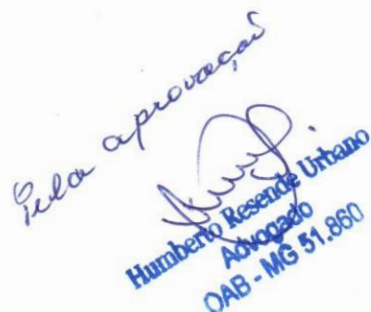 Pela aprovação
Humberto Resende Urbano
Advogado
OAB - MG 51.860